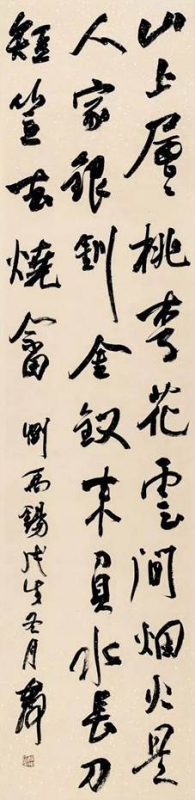 山上層々桃李花雲間烟火是
人家銀釧金釵来負水長刀
短笠去燒畬 劉禹錫 戊 冬月